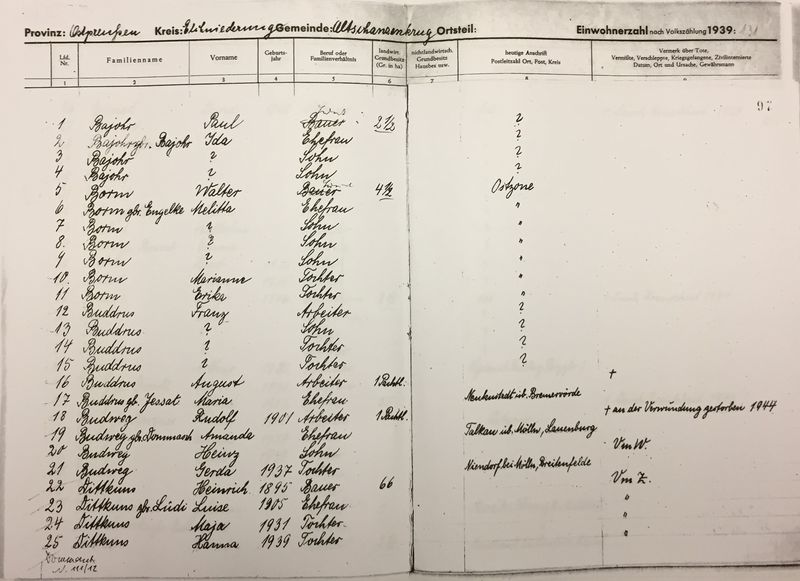 Provinz: Ostpreußen Kreis: Elchniederung Gemeinde: Altschanzenkrug Ortsteil: Einwohnerzahl nach Volkszählung 1939: 131
Lfd. Nr. Familienname Vorname Geburts-jahr Beruf oder Familienverhältnis landwirt. Grundbesitz (Gr. in ha) nichtlandwirtsch. Grundbesitz Hausbes. usw. heutige Anschrift Postleitzahl Ort, Post, Kreis Vermerk über Tote, Vermißte, Verschleppte, Kriegsgefangene, Zivilinternierte Datum, Ort und Ursache, Gewährsmann
1 2 3 4 5 6 7 8 9
97
1 Bajohr Paul Bauer 2 1/2 ?
2 Bajohr gbr. Bajohr Ida Ehefrau ?
3 Bajohr ? Sohn ?
4 Bajohr ? Sohn ?
5 Borm Walter Bauer 4 1/2 Ostzone
6 Borm gbr. Engelke Melitta Ehefrau "
7 Borm ? Sohn "
8. Borm ? Sohn "
9 Borm ? Sohn "
10. Borm Marianne Tochter "
11 Borm Erika Tochter "
12 Buddrus Franz Arbeiter ?
13 Buddrus ? Sohn ?
14 Buddrus ? Tochter ?
15 Buddrus ? Tochter ?
16 Buddrus August Arbeiter 1 Pachtl. †
17 Buddrus gb. Jessat Maria Ehefrau Neukustedt üb. Bremervörde
18 Budweg Rudolf 1901 Arbeiter 1 Pachtl. † an der Verwundung gestorben 1944
19 Budweg gbr. Dommasch Amanda Ehefrau Talkau üb. Mölln, Lauenburg
20 Budweg Heinz Sohn Vm W.
21 Budweg Gerda 1937 Tochter Niendorf bei Mölln, Breitenfelde
22 Dittkuns Heinrich 1895 Bauer 66 Vm Z.
23 Dittkuns gbr. Lüdi Luise 1905 Ehefrau "
24 Dittkuns Maja 1931 Tochter "
25 Dittkuns Hanna 1939 Tochter "
Dommasch
111/12